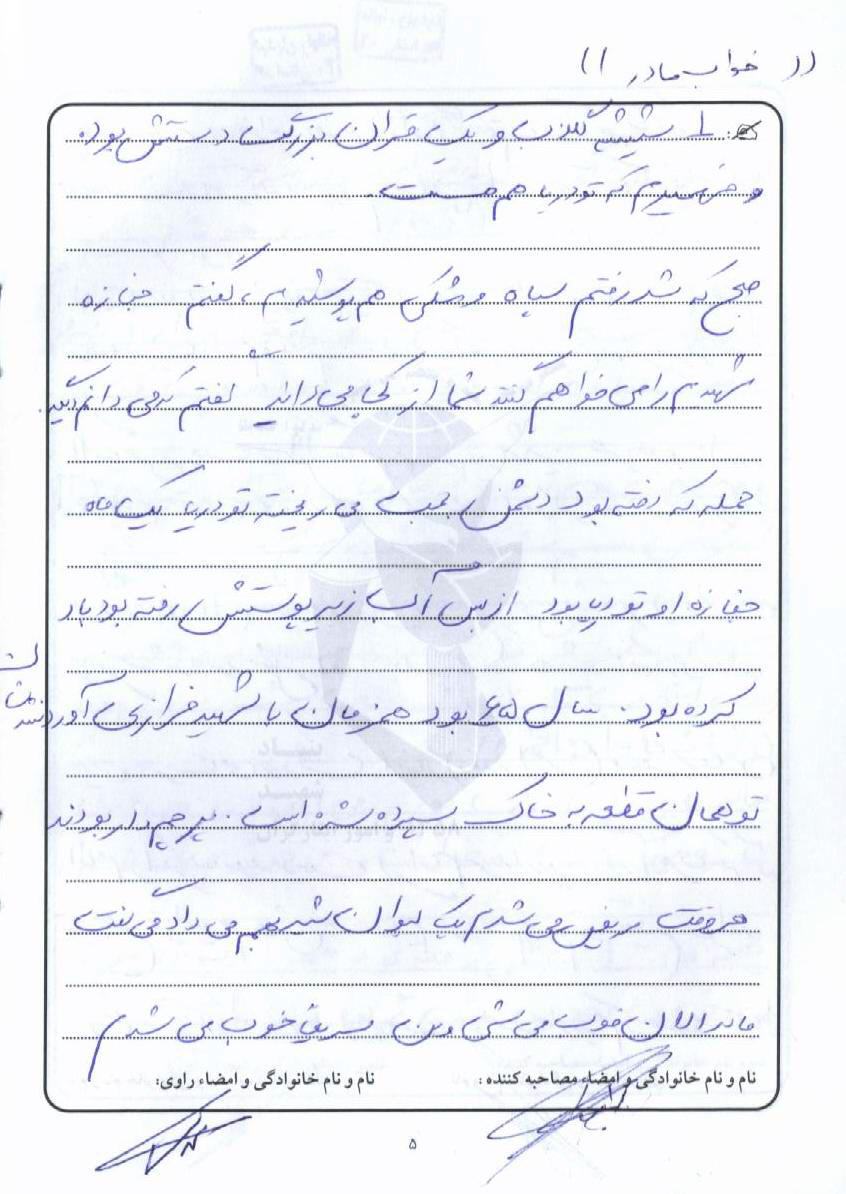 (( خواب مادر ))
۱ شیشه گلاب و یک قران بزرگ دستش بوده
و فهمیدم که تو دریا هم هست.
صبح که شد رفتم سیاه و مشکی هم پوشیدم، گفتم جنازه
شهیدم را می خواهم گفتند شما از کجا می دانید گفتم که می دانم دیگه.
حمله که رفته بود دشمن بمب می ریخته تو دریا یک ماه
جنازه او تو دریا بود از بس آب زیر پوستش رفته بود باد
کرده بود. سال ۶۵ بود همزمان با شهید خرازی آوردنشان
تو همان قطعه به خاک سپرده شده است. پرچم دار بودند
هر وقت مریض می شدم یک لیوان شربتم می داد می گفت
مادر الان خوب می شی و من سریع خوب می شدم
نام و نام خانوادگی و امضاء مصاحبه کننده :
نام و نام خانوادگی و امضاء راوی:
۵
بنیاد
شهید
و امور ایثارگران